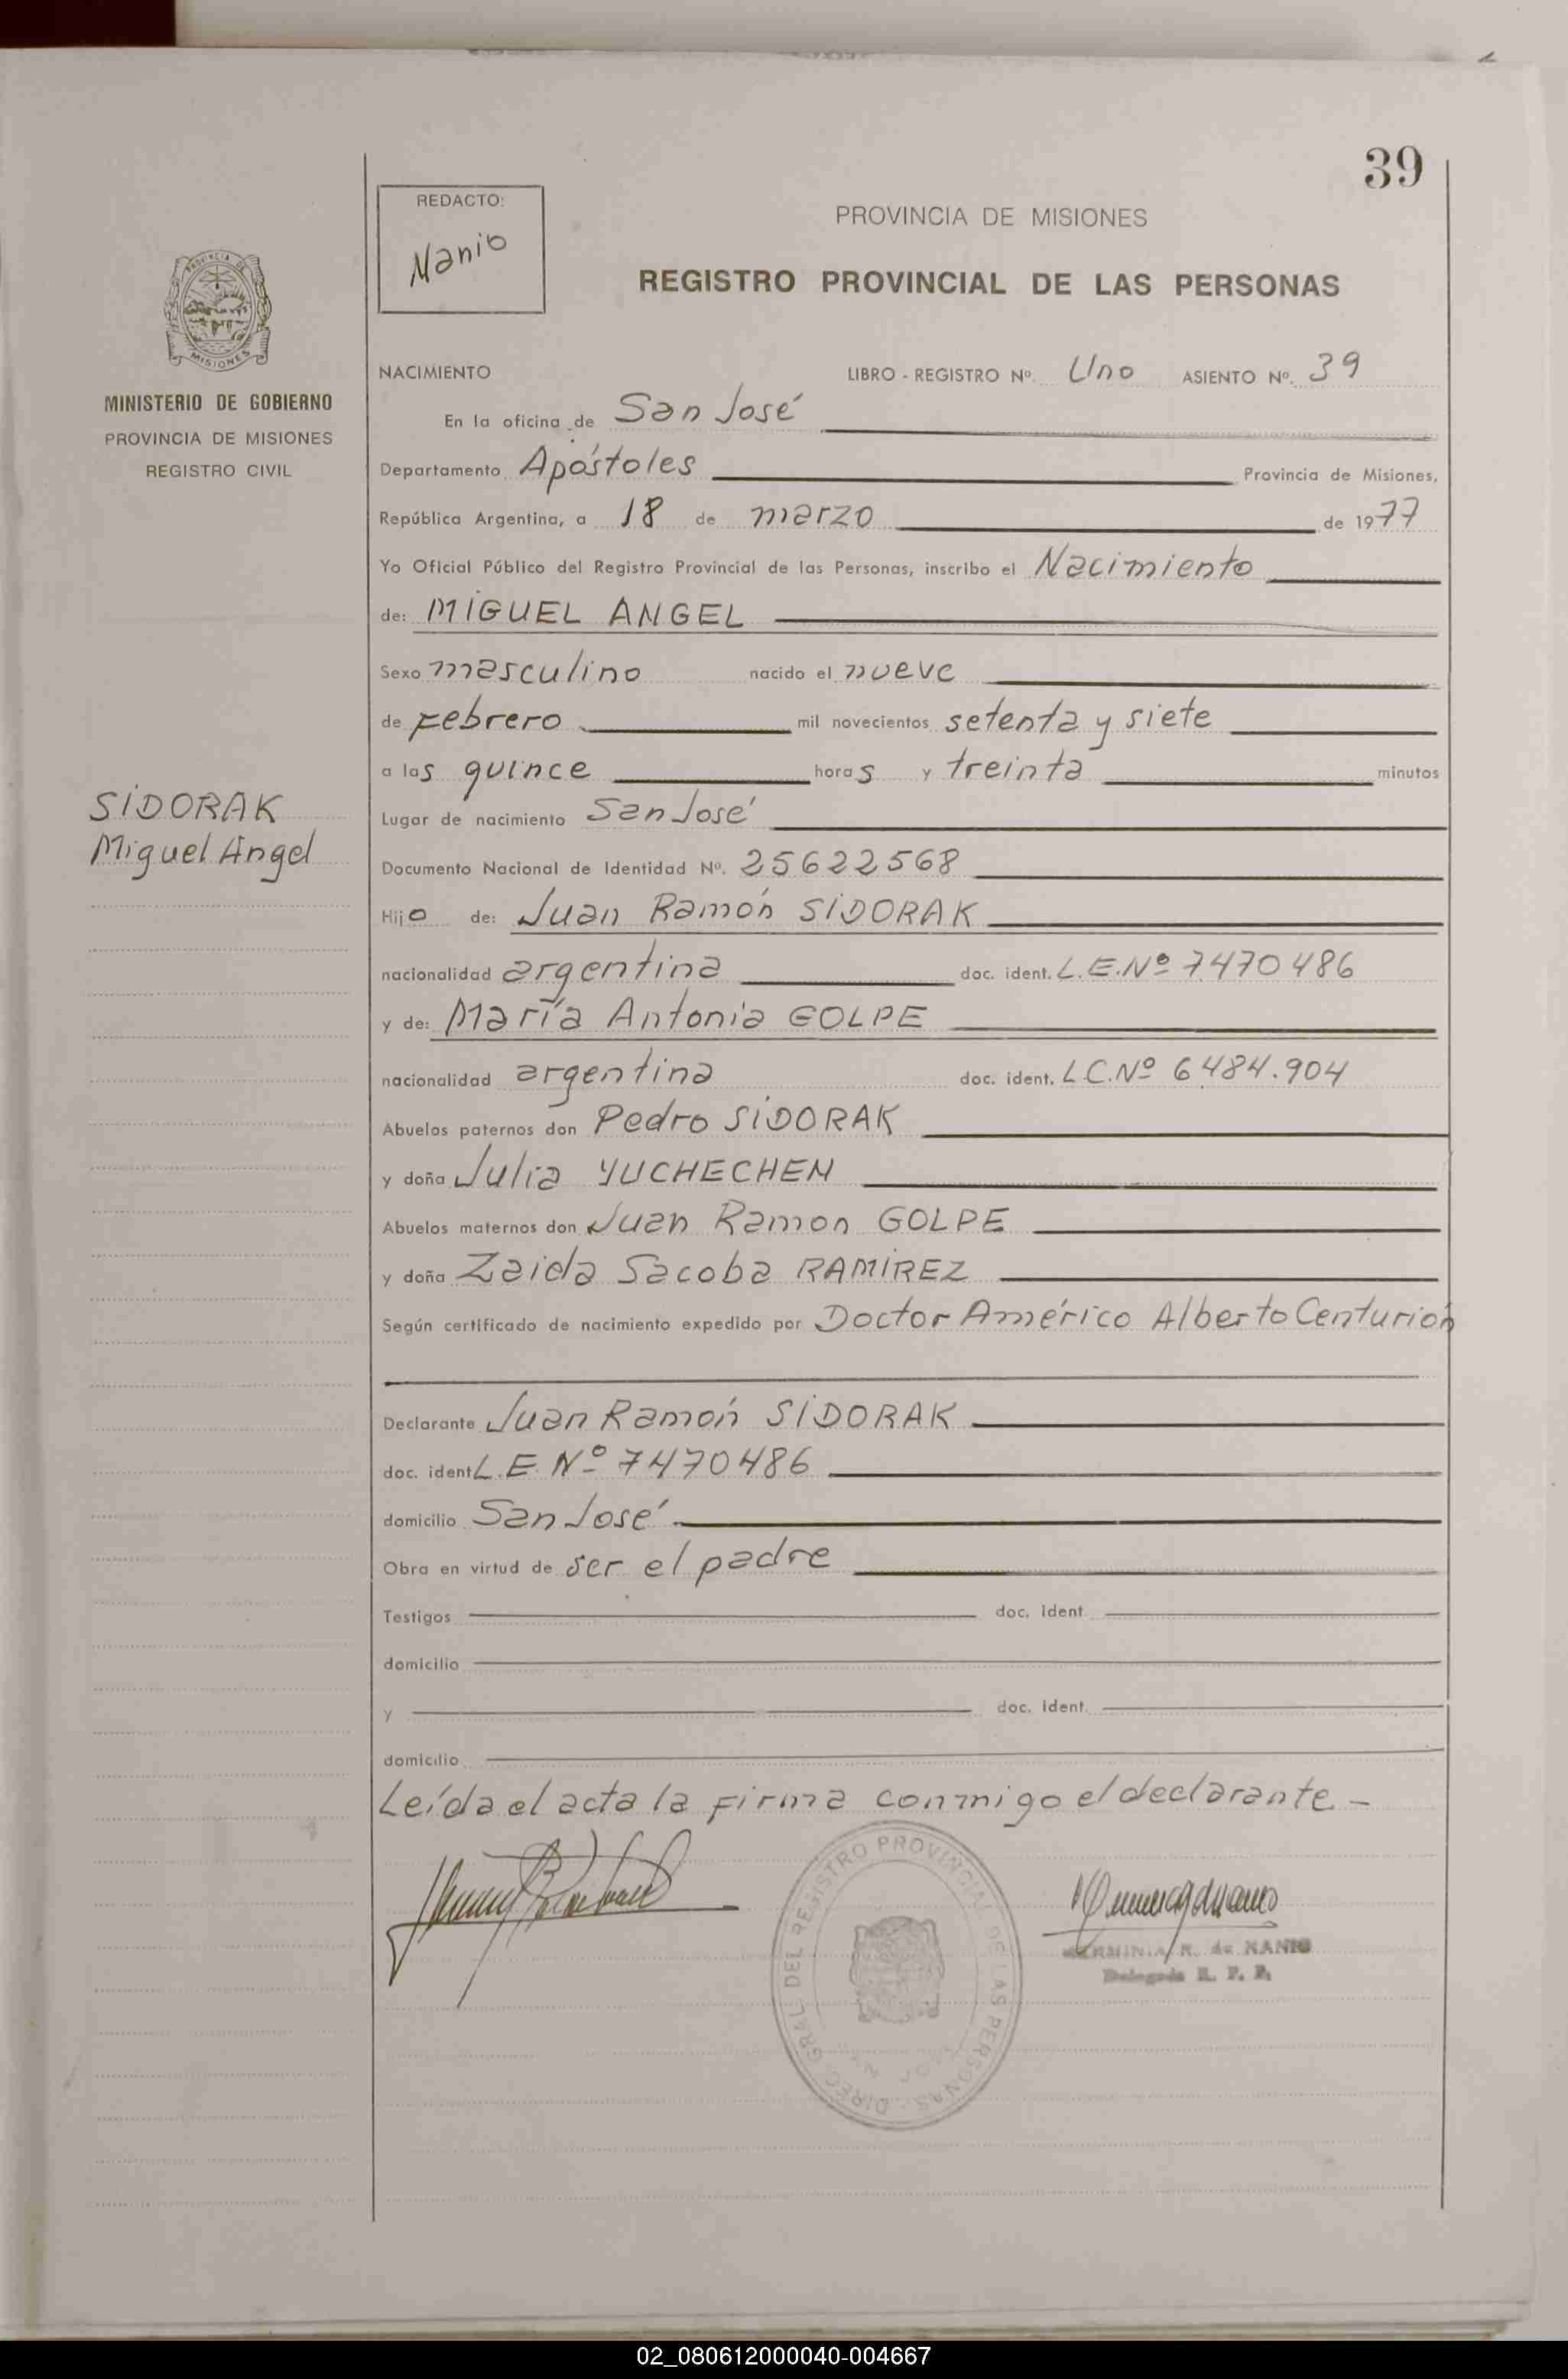 39
REDACTO:
Nanio
PROVINCIA DE MISIONES
REGISTRO PROVINCIAL DE LAS PERSONAS
PROVINCIA DE
MISIONES
MINISTERIO DE GOBIERNO
PROVINCIA DE MISIONES
REGISTRO CIVIL
SIDORAK
Miguel Angel
NACIMIENTO LIBRO - REGISTRO Nº. Uno ASIENTO Nº. 39
En la oficina de San José
Departamento Apóstoles Provincia de Misiones,
República Argentina, a 18 de marzo de 1977
Yo Oficial Público del Registro Provincial de las Personas, inscribo el Nacimiento
de: MIGUEL ANGEL
Sexo masculino nacido el nueve
de Febrero mil novecientos setenta y siete
a las quince horas y treinta minutos
Lugar de nacimiento San José
Documento Nacional de Identidad Nº. 25622568
Hijo de: Juan Ramón SIDORAK
nacionalidad argentina doc. ident. L.E.Nº 7470486
y de: María Antonia GOLPE
nacionalidad argentina doc. ident. L.C.Nº 6484.904
Abuelos paternos don Pedro SIDORAK
y doña Julia YUCHECHEN
Abuelos maternos don Juan Ramon GOLPE
y doña Zaida Sacoba RAMIREZ
Según certificado de nacimiento expedido por Doctor Américo Alberto Centurión
Declarante Juan Ramón SIDORAK
doc. ident L.E. Nº 7470486
domicilio San José
Obra en virtud de ser el padre
Testigos doc. ident.
domicilio
y doc. ident.
domicilio
Leída el acta la firma conmigo el declarante -
DIREC. GRAL. DEL REGISTRO PROVINCIAL DE LAS PERSONAS
R. de NANIO
Delegada R. P. P.
02_080612000040-004667